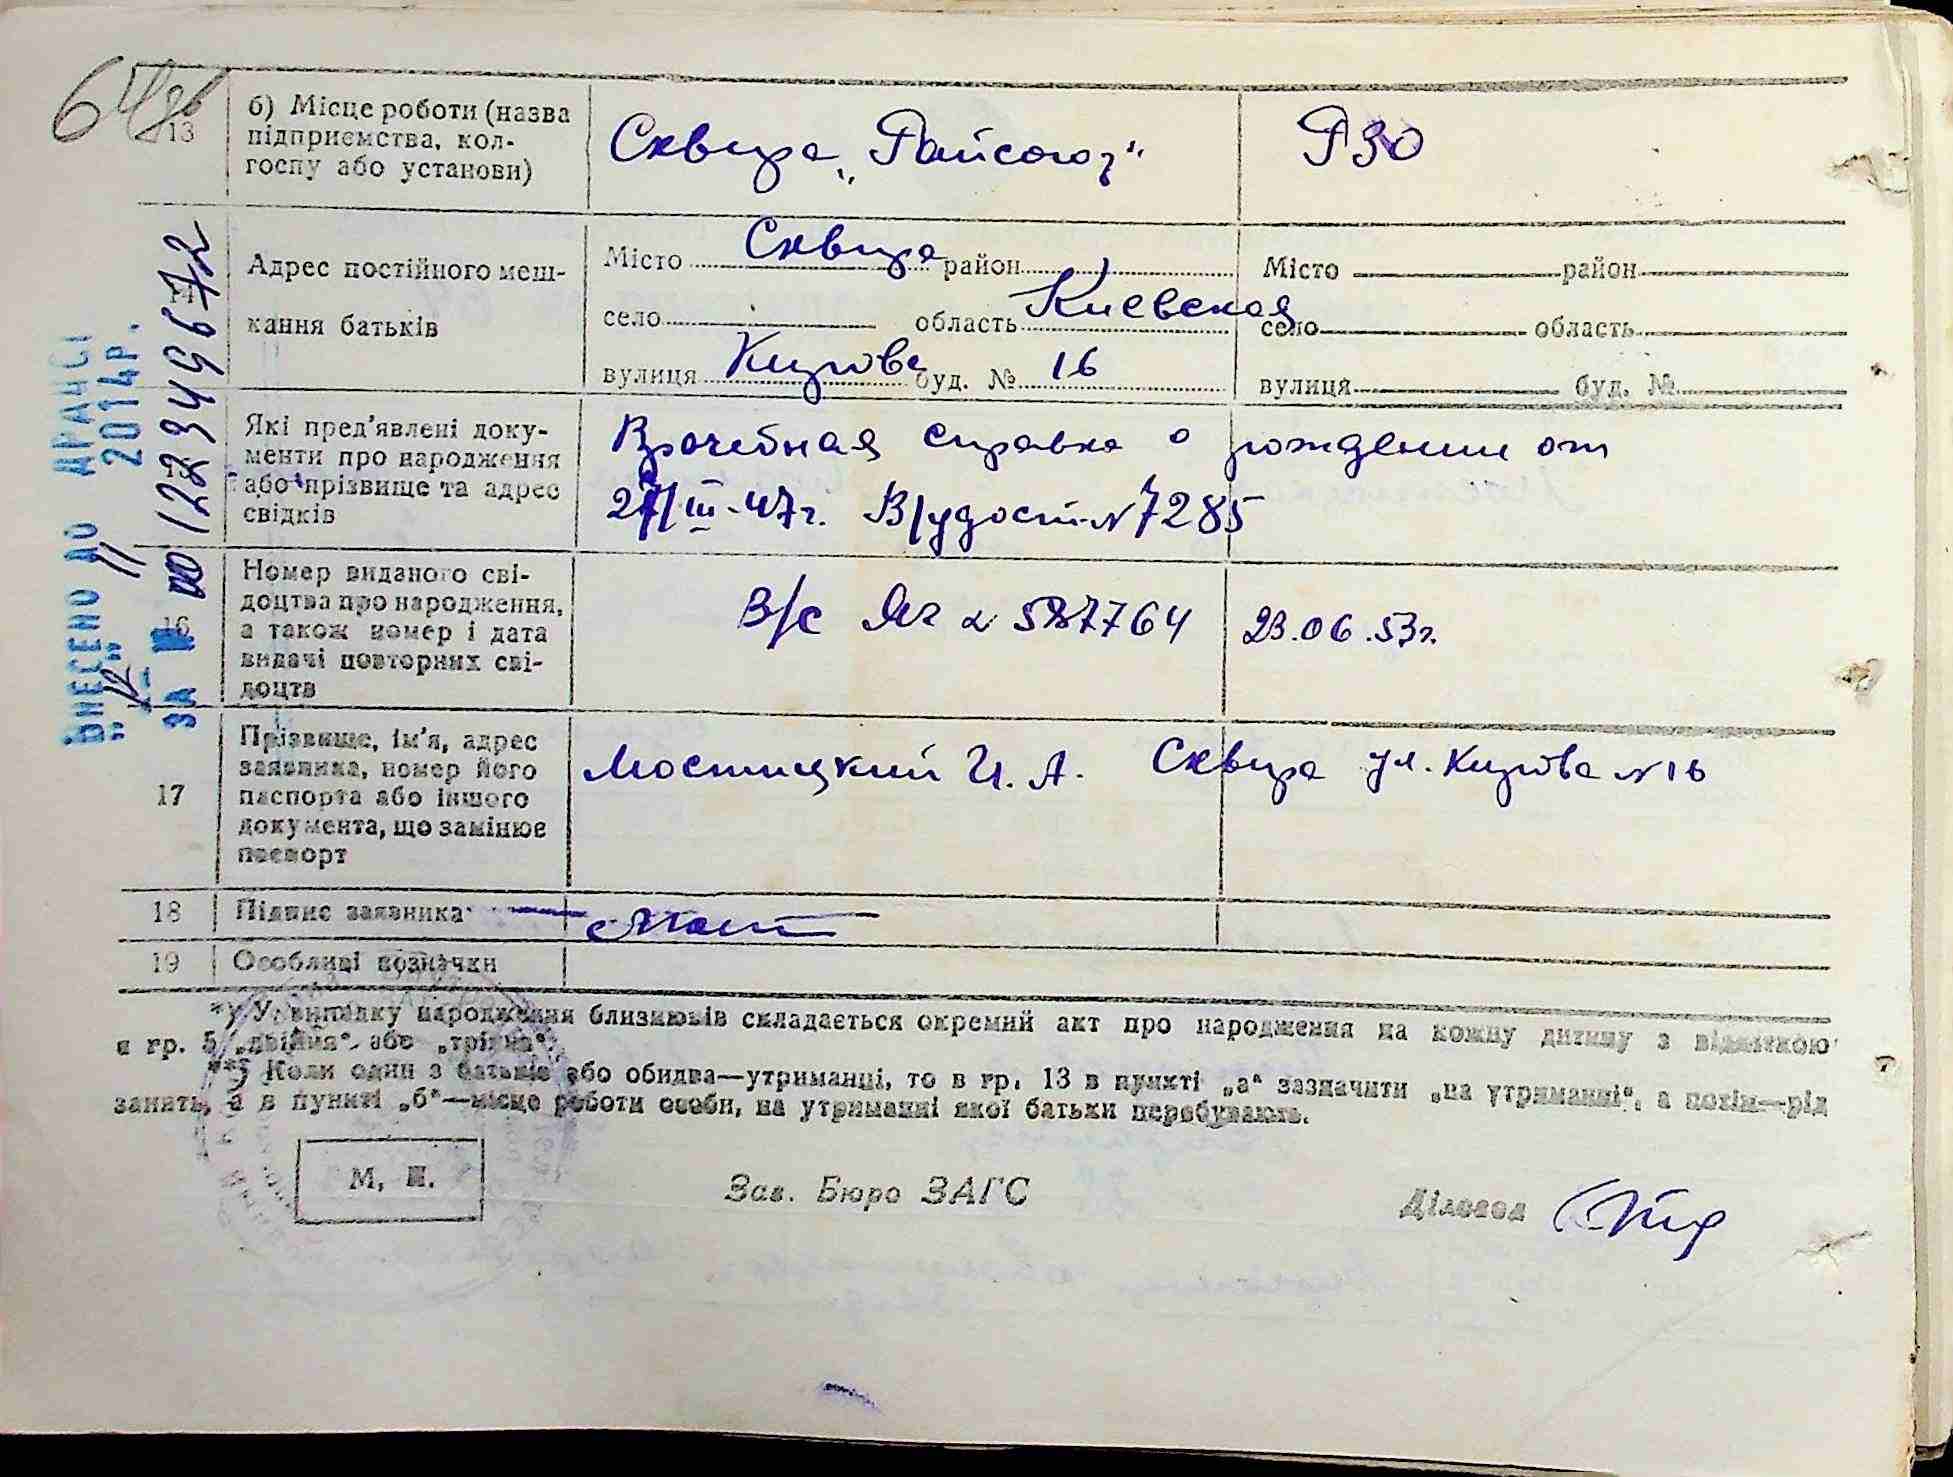 13
б) Місце роботи (назва
підприємства, кол-
госпу або установи)
Сквира „Райсоюз“
РЗО
14
Адрес постійного меш-
кання батьків
Місто Сквира район
село область Киевская
вулиця Кирова буд. № 16
Місто район
село область
вулиця буд. №
Які пред'явлені доку-
менти про народження
або прізвище та адрес
свідків
Врачебная справка о рождении от
27/III-47г. В/удост. N 7285
16
Номер виданого сві-
доцтва про народження,
а також номер і дата
видачі повторних сві-
доцтв
В/с № 587764
23.06.53г.
17
Прізвище, ім'я, адрес
заявника, номер його
паспорта або іншого
документа, що замінює
паспорт
Мостицкий И. А. Сквира ул. Кирова N 16
18
Підпис заявника
19
Особливі позначки
*) У випадку народження близнюків складається окремий акт про народження на кожну дитину з відміткою
в гр. 5 „двійня“ або „трійня“.
**) Коли один з батьків або обидва—утриманці, то в гр. 13 в пункті „а“ зазначити „на утриманні“, а потім—рід
занять, а в пункті „б“—місце роботи особи, на утриманні якої батьки перебувають.
М. П.
Зав. Бюро ЗАГС
Діловод
ВНЕСЕНО ДО ДРАЦСІ
„12“ 11 2014р.
ЗА № 00123496672